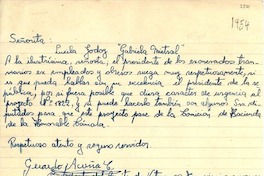 1954
Señorita:
Lucila Godoy "Gabriela Mistral"
A la ilustrísima, señora, el presidente de los exonerados tran-
viarios ex empleados y obreros ruega muy respetuosamente, si
es que pueda hablar con su excelencia el presidente de la re-
pública, por si fuera posible que diera carácter de urgencia al
proyecto Nº y si puede hacerlo también con algunos Srs di-
putados para que este proyecto pase de la Comisión de Hacienda
de la Honorable Cámara.
Respetuoso atento y seguro servidor
Gerardo Acuña C.